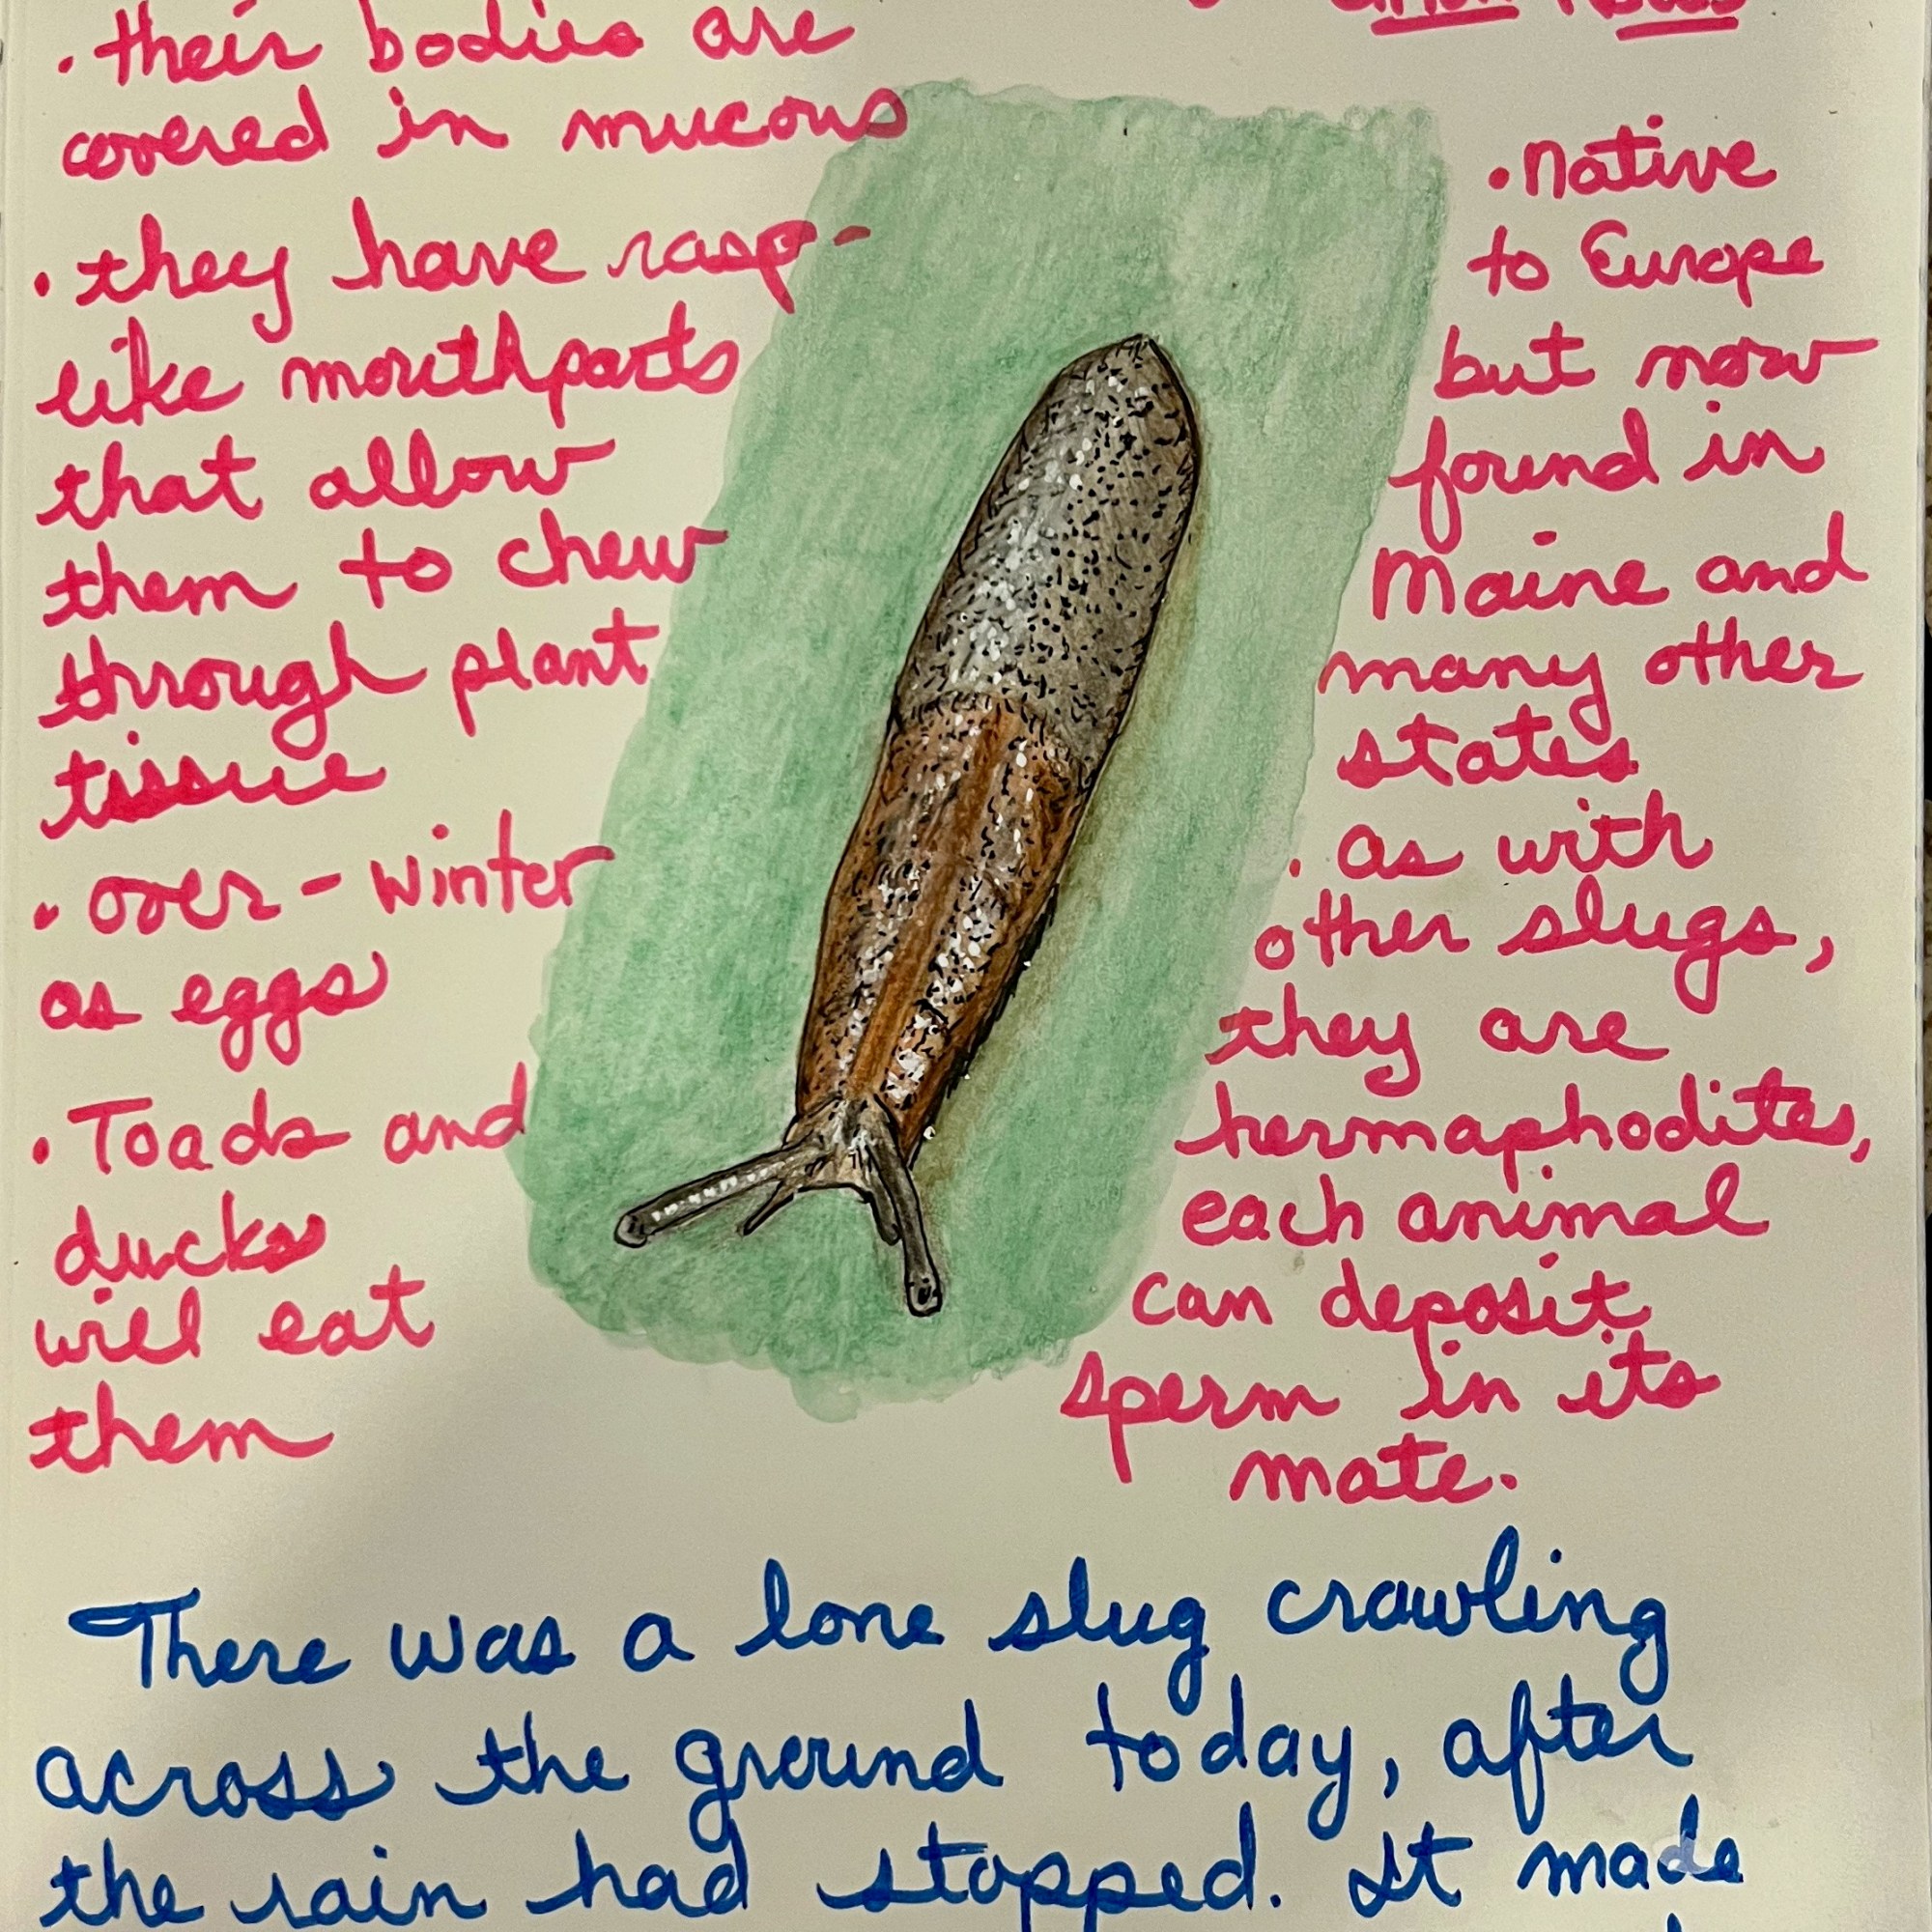 · their bodies are
covered in mucous
· they have rasp-
like mouthparts
that allow
them to chew
through plant
tissue
· over-winter
as eggs
· Toads and
ducks
will eat
them
· native
to Europe
but now
found in
Maine and
many other
states
· as with
other slugs,
they are
hermaphodites,
each animal
can deposit
sperm in its
mate.
There was a lone slug crawling
across the ground today, after
the rain had stopped. It made